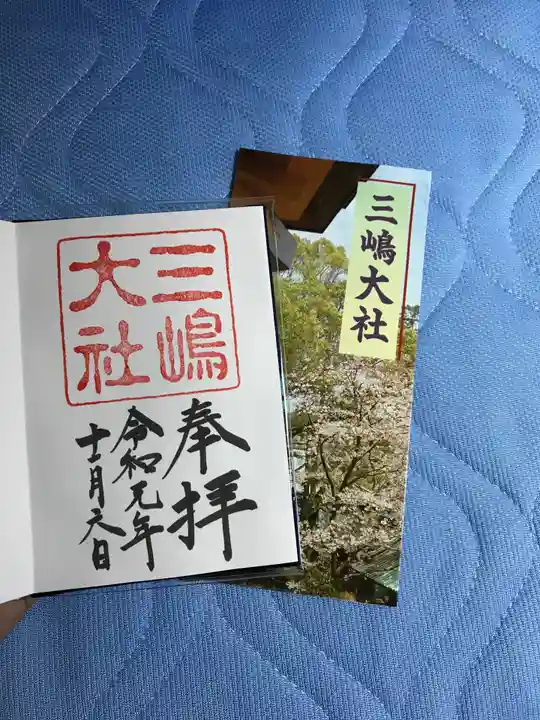 三嶋
大社
奉拝
令和元年
十一月六日
三嶋大社